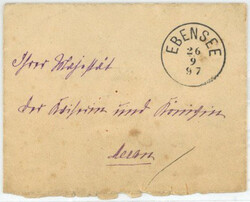 EBENSEE
26
9
97
Ihrer Majestät
der Kaiserin und Königin
Meran